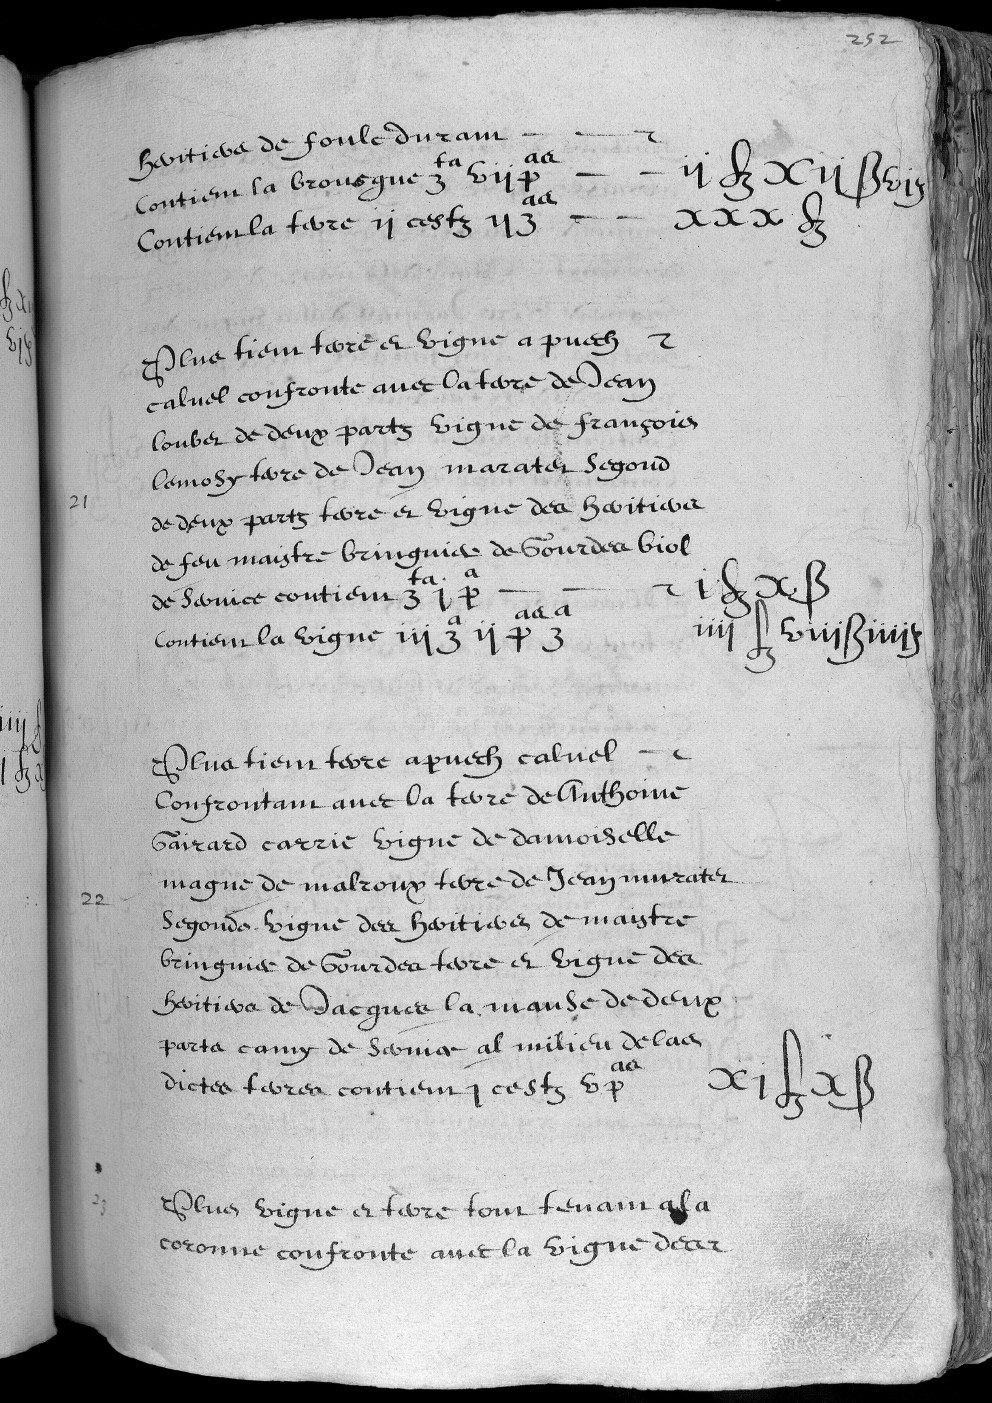 252
heritiers de foule duram
Contient la brousque 3 ta vii p aa ii ß xii ß vi
Contient la terre ii cest3 ii 3 aa xxx
Plus tient terre et vigne a puech
calvel confronte avec la terre de Jean
loubet de deux part3 vigne de françois
lemosy terre de Jean maratet Segond
21
de deux part3 terre et vigne des heritiers
de feu maistre bringuier de Gourdes viol
de Service contient 3 ta j p a i x ß
Contient la vigne iii 3 a ii p aa 3 a iiii viii ß iiii
Plus tient terre a puech calvel
Confrontant avec la terre de Anthoine
Gairard carrie vigne de damoiselle
magne de malroux terre de Jean muratet
22
Segond vigne des heritiers de maistre
bringuier de Gourdes terre et vigne des
heritiers de Jacques la manse de deux
parts camy de Service al milieu de las
dictes terres contient j cest3 v p aa xi x ß
23
Plus vigne et terre tout tenant a la
coronne confronte avec la vigne des